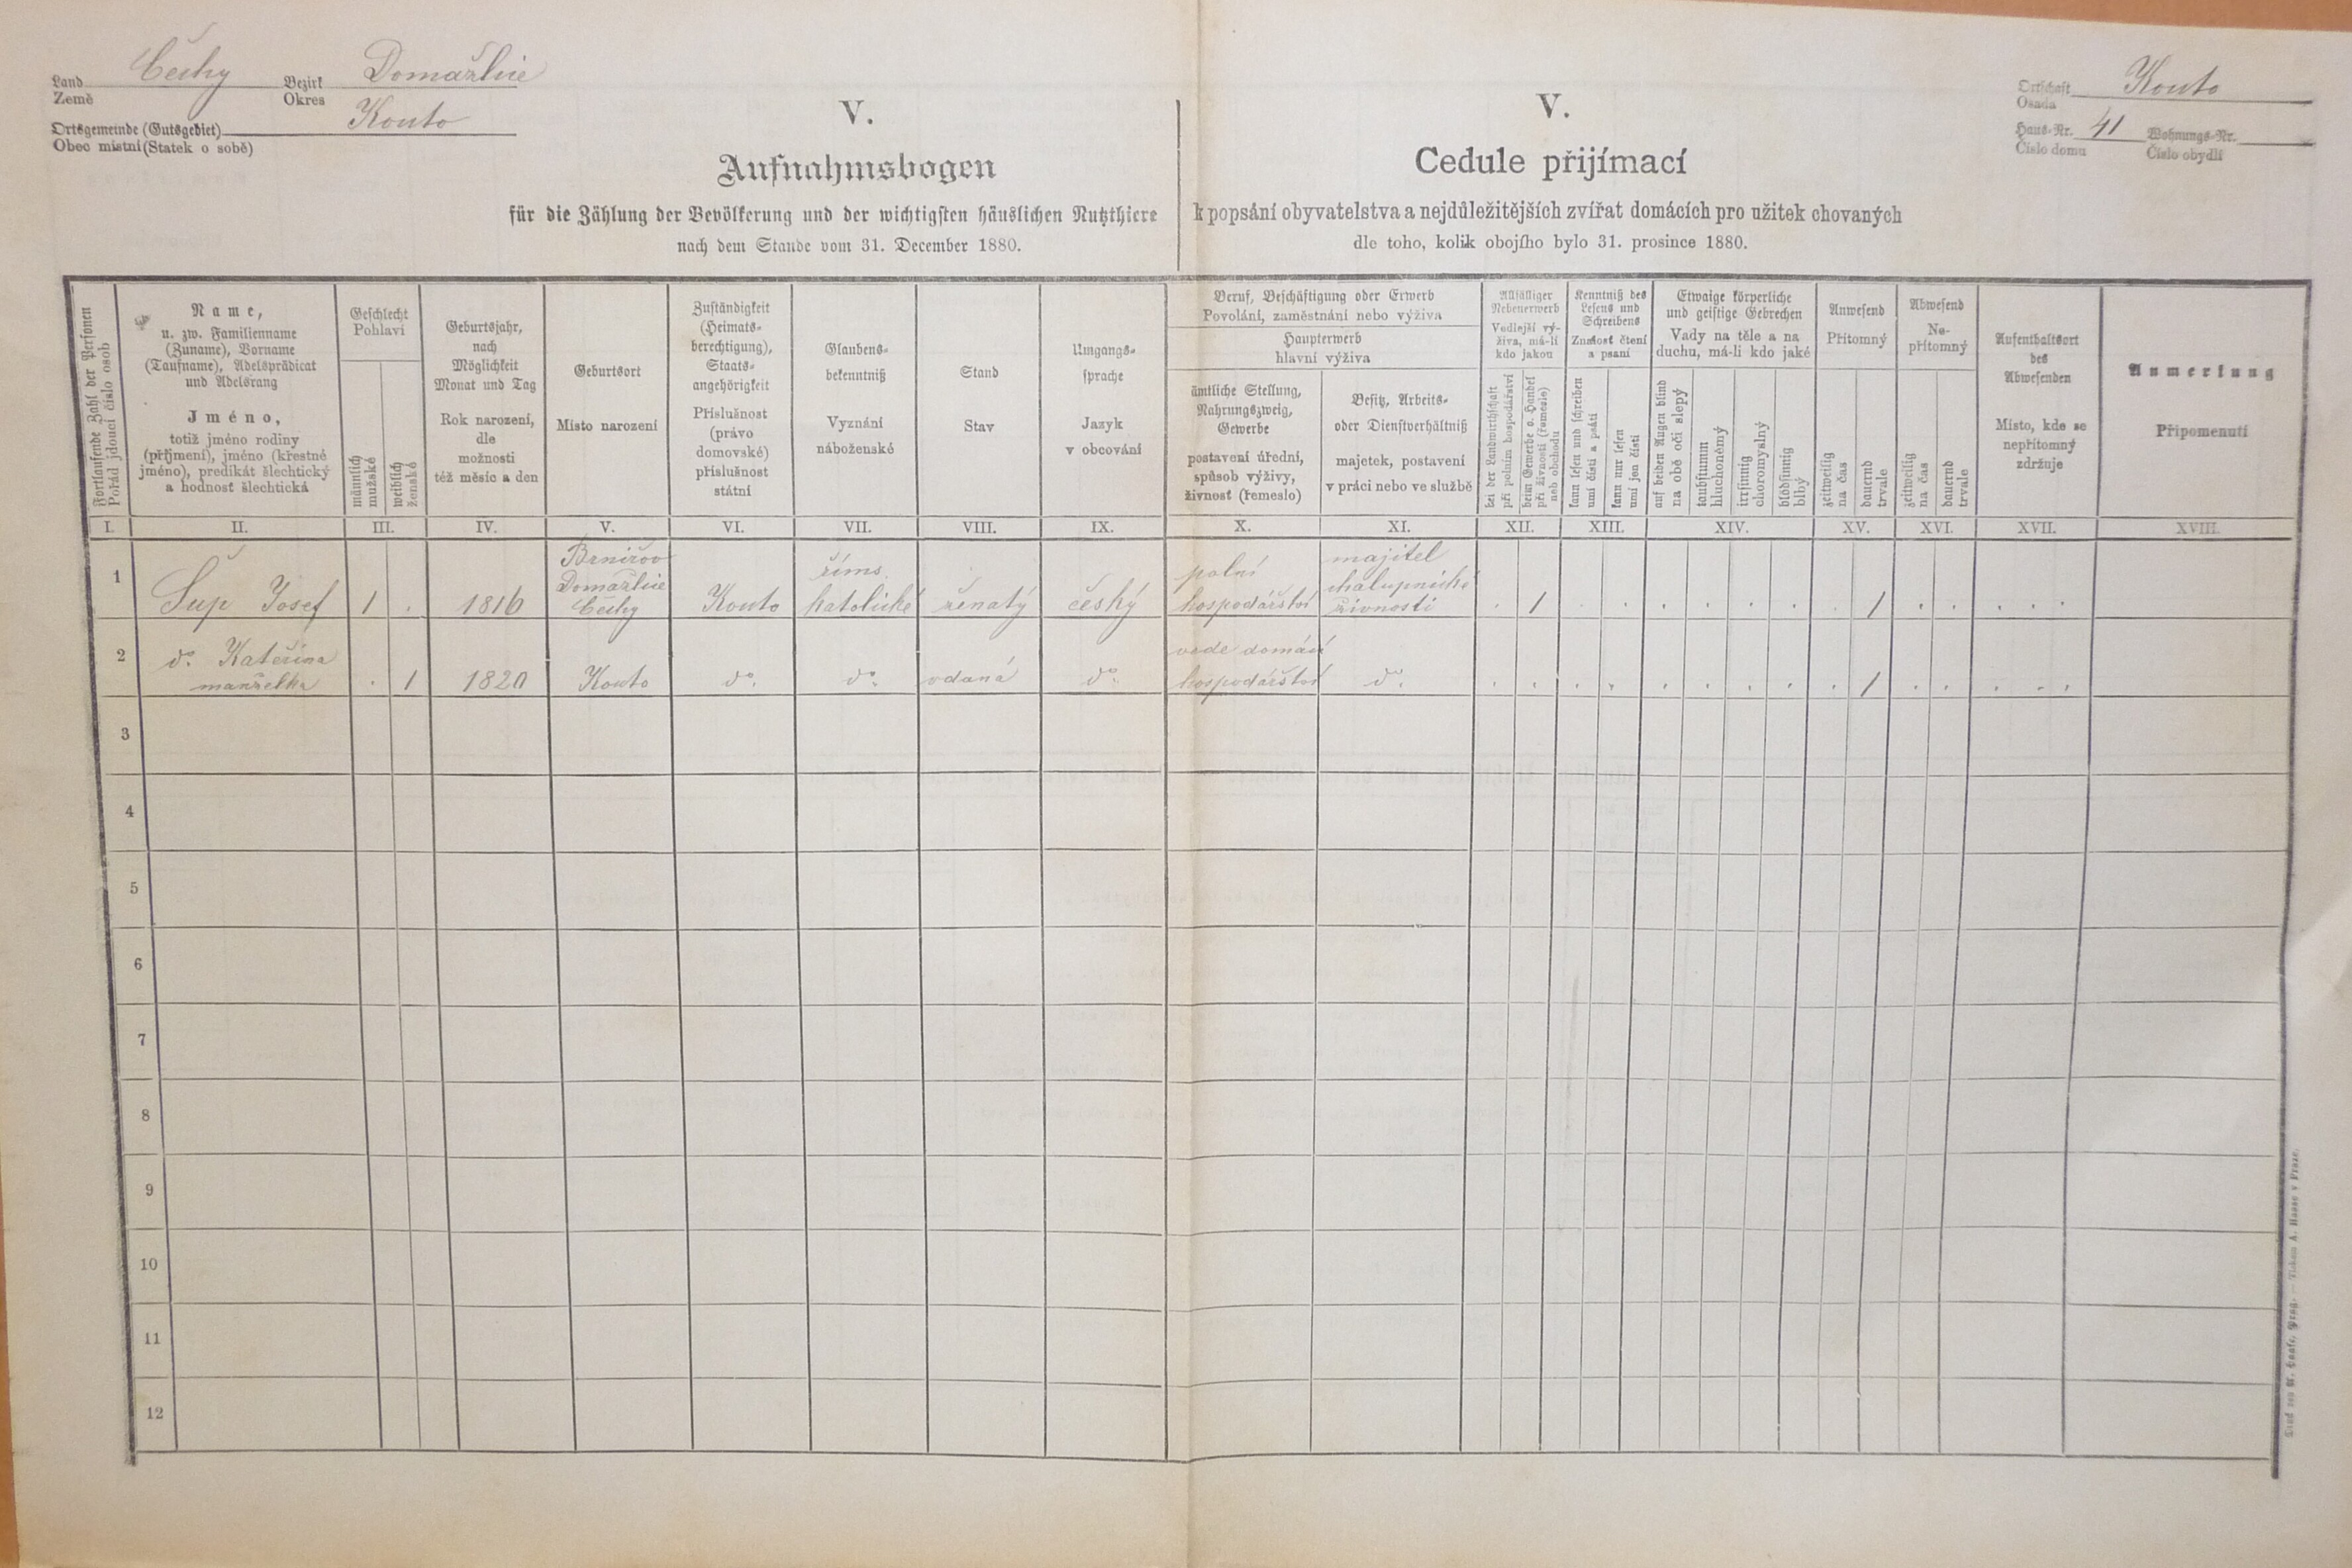 Land Čechy Bezirk Domažlice
Země Okres
Ortsgemeinde (Gutsgebiet) Kouto
Obec místní (Statek o sobě)
V.
Aufnahmsbogen
für die Zählung der Bevölkerung und der wichtigsten häuslichen Nutzthiere
nach dem Stande vom 31. December 1880.
V.
Cedule přijímací
k popsání obyvatelstva a nejdůležitějších zvířat domácích pro užitek chovaných
dle toho, kolik obojího bylo 31. prosince 1880.
Ortschaft Kouto
Osada
Haus-Nr. 41 Wohnungs-Nr.
Číslo domu Číslo obydlí
Fortlaufende Zahl der Personen
Pořád jdoucí číslo osob
Name,
u. zw. Familienname
(Zuname), Vorname
(Taufname), Adelsprädicat
und Adelsrang
Jméno,
totiž jméno rodiny
(příjmení), jméno (křestné
jméno), predikát šlechtický
a hodnost šlechtická
Geschlecht
Pohlaví
männlich
mužské
weiblich
ženské
Geburtsjahr,
nach
Möglichkeit
Monat und Tag
Rok narození,
dle
možnosti
též měsíc a den
Geburtsort
Místo narození
Zuständigkeit
(Heimats-
berechtigung),
Staats-
angehörigkeit
Příslušnost
(právo
domovské)
příslušnost
státní
Glaubens-
bekenntniß
Vyznání
náboženské
Stand
Stav
Umgangs-
sprache
Jazyk
v obcování
Beruf, Beschäftigung oder Erwerb
Povolání, zaměstnání nebo výživa
Haupterwerb
hlavní výživa
ämtliche Stellung,
Nahrungszweig,
Gewerbe
postavení úřední,
spůsob výživy,
živnost (řemeslo)
Besitz, Arbeits-
oder Dienstverhältniß
majetek, postavení
v práci nebo ve službě
Allfälliger
Nebenerwerb
Vedlejší vý-
živa, má-li
kdo jakou
bei der Landwirthschaft
při polním hospodářství
beim Gewerbe o. Handel
při živnosti (řemesle)
neb obchodu
Kenntniß des
Lesens und
Schreibens
Známost čtení
a psaní
kann lesen und schreiben
umí čísti a psáti
kann nur lesen
umí jen čísti
Etwaige körperliche
und geistige Gebrechen
Vady na těle a na
duchu, má-li kdo jaké
auf beiden Augen blind
na obě oči slepý
taubstumm
hluchoněmý
irrsinnig
choromyslný
blödsinnig
blbý
Anwesend
Přítomný
zeitweilig
na čas
dauernd
trvale
Abwesend
Ne-
přítomný
zeitweilig
na čas
dauernd
trvale
Aufenthaltsort
des
Abwesenden
Místo, kde se
nepřítomný
zdržuje
Anmerkung
Připomenutí
I. II. III. IV. V. VI. VII. VIII. IX. X. XI. XII. XIII. XIV. XV. XVI. XVII. XVIII.
1 Šup Josef 1 . 1816
Brnířov
Domažlice
Čechy
Kouto
řims.
katolické
ženatý český
polní
hospodářství
majitel
chalupnické
živnosti
. 1 . . . . . . . 1 . . . . .
2 dº. Kateřina
manželka
. 1 1820 Kouto dº. dº. vdaná dº.
vede domácí
hospodářství
dº.
. . . . . . . . . 1 . . . . .
3
4
5
6
7
8
9
10
11
12
Druck von A. Haase, Prag. — Tiskem A. Haase v Praze.